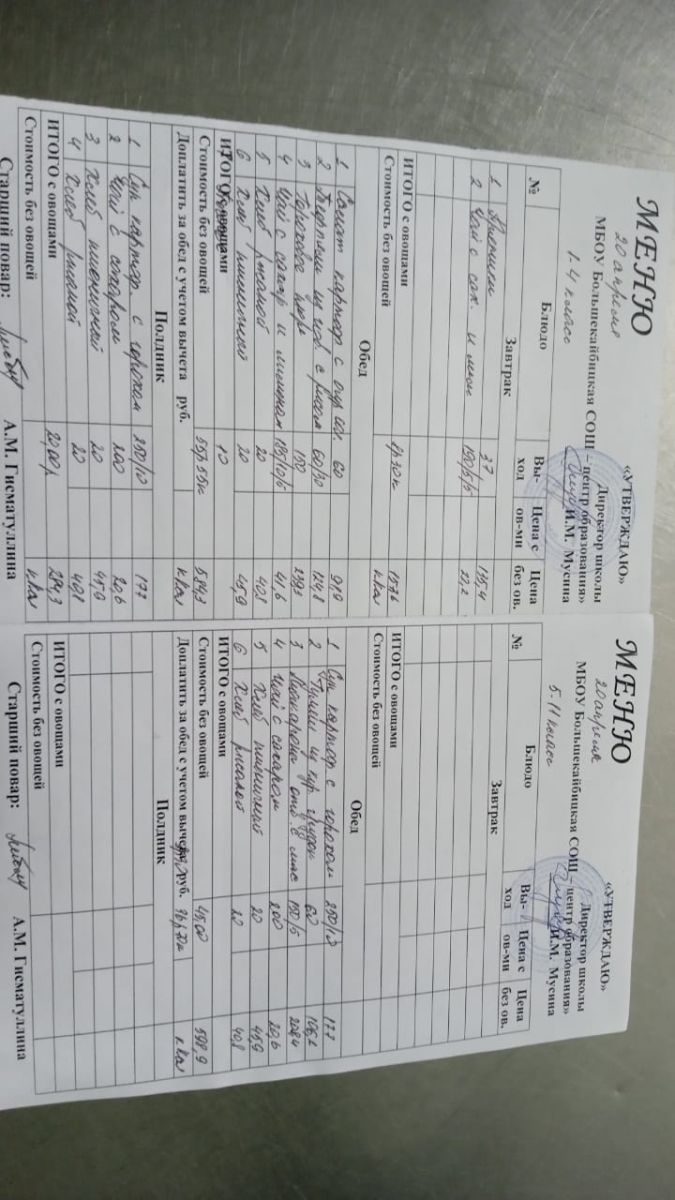 МЕНЮ
«УТВЕРЖДАЮ»
20 апреля
Директор школы
МБОУ Большекайбицкая СОШ – центр образования»
1-4 класс
И.М. Мусина
№ Блюдо Вы-ход Цена с ов-ми Цена без ов.
Завтрак
1 37 135,4
2 Чай с сах. и мол 190/5/5 22,2
ИТОГО с овощами
Стоимость без овощей 157,6 ккал
Обед
1 Салат картоф с 60 91,9
2 60/30 124,8
3 Гороховое пюре 150 239,3
4 Чай с сахар и лимоном 185/10/5 41,6
5 Хлеб ржаной 20 40,8
6 Хлеб пшеничный 20 45,9
ИТОГО с овощами 10
Стоимость без овощей 584,3
Доплатить за обед с учетом вычета руб. ккал
Полдник
1 Суп картоф. с горохом 250/10 177
2 Чай с сахаром 200 20,6
3 Хлеб пшеничный 20 45,9
4 Хлеб ржаной 20 40,8
ИТОГО с овощами 20,00 284,3
Стоимость без овощей ккал
Старший повар: А.М. Гисматуллина
МЕНЮ
«УТВЕРЖДАЮ»
20 апреля
Директор школы
МБОУ Большекайбицкая СОШ – центр образования»
5-11 класс
И.М. Мусина
№ Блюдо Вы-ход Цена с ов-ми Цена без ов.
Завтрак
ИТОГО с овощами
Стоимость без овощей
Обед
1 Суп картоф с горохом 250/10 177
2 из кур грудки 60 106,2
3 Макароны отв. с мас 150/5 208,4
4 Чай с сахаром 200 20,6
5 Хлеб пшеничный 20 45,9
6 Хлеб ржаной 20 40,8
ИТОГО с овощами
Стоимость без овощей 45,00 598,9
Доплатить за обед с учетом вычета руб. ккал
Полдник
ИТОГО с овощами
Стоимость без овощей
Старший повар: А.М. Гисматуллина